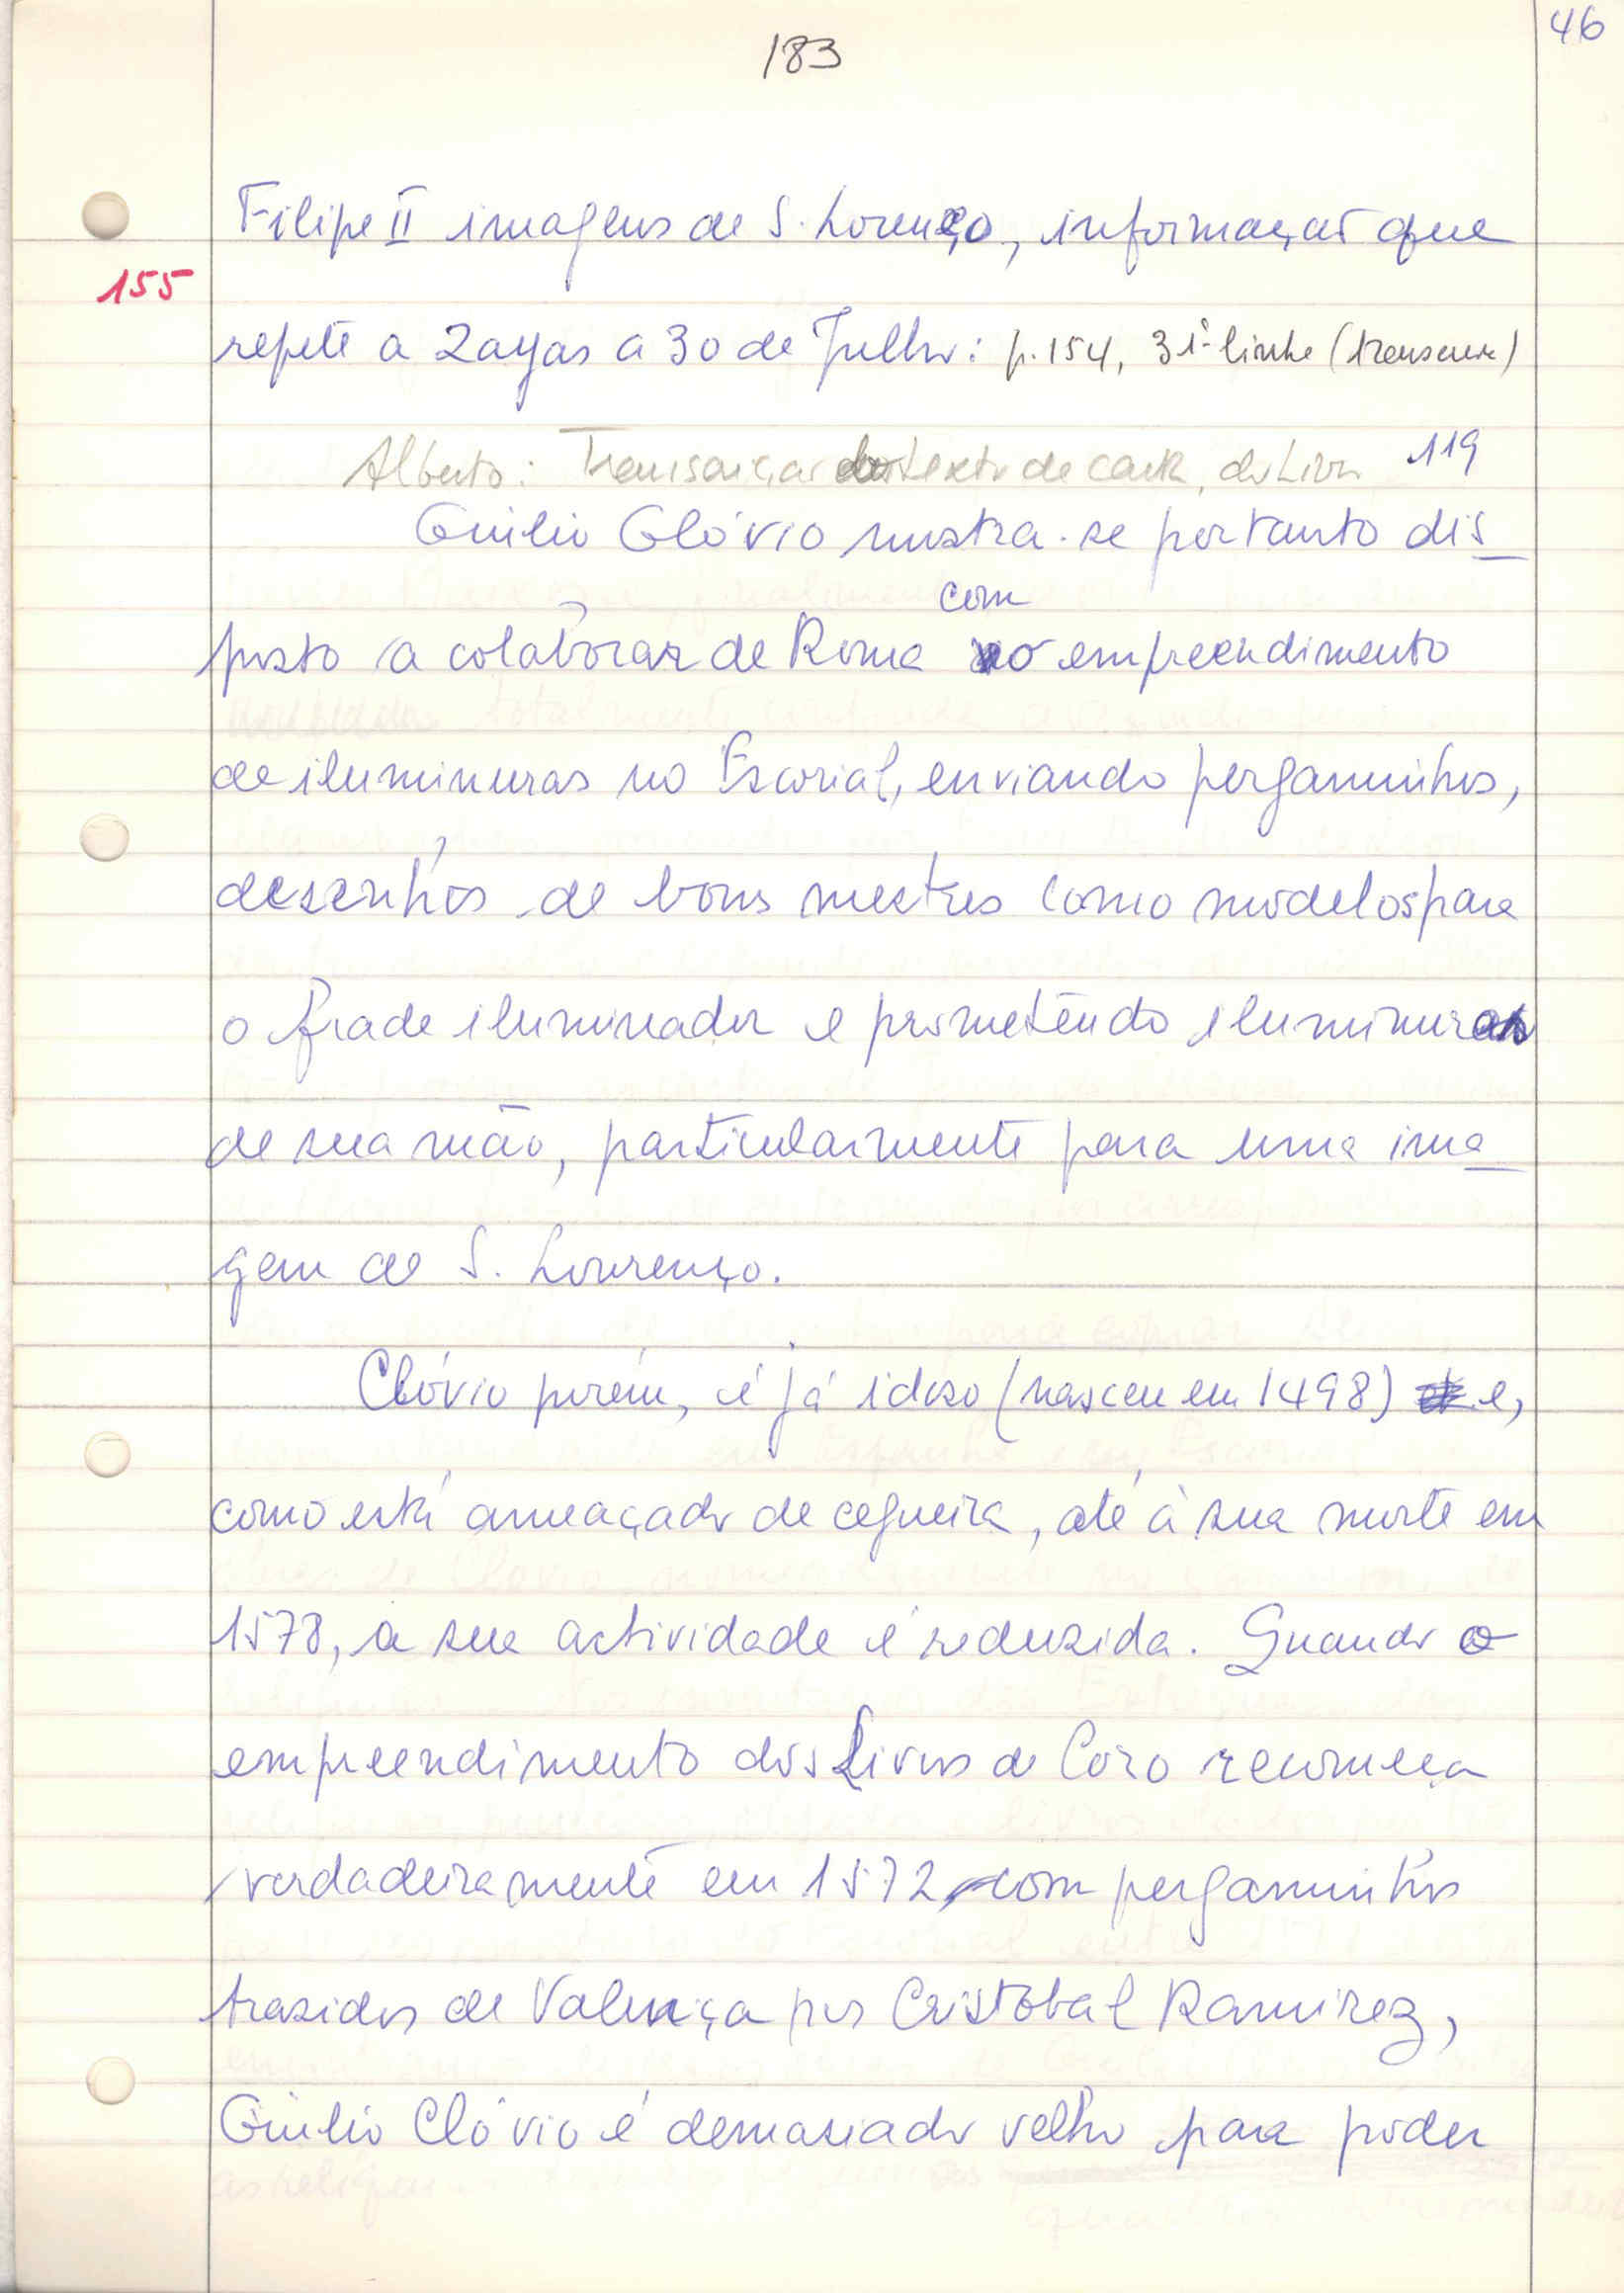 183
46
Filipe II imagens de S. Lorenço, informação que
155
repete a Zayas a 30 de Julho: p. 154, 3ª linha (transcrever)
Alberto: Transcrição do texto de carta, do Livro 119
Giulio Clóvio mostra-se portanto dis
com
posto a colaborar de Roma no empreendimento
de iluminuras no Escorial, enviando pergaminhos,
desenhos de bons mestres como modelos para
o frade iluminador e prometendo iluminuras
de sua mão, particularmente para uma ima
gem de S. Lourenço.
Clóvio porém, é já idoso (nasceu em 1498) e,
como está ameaçado de cegueira, até à sua morte em
1578, a sua actividade é reduzida. Quando o
empreendimento dos Livros de Coro recomeça
verdadeiramente em 1572, com pergaminhos
trazidos de Valença por Cristobal Ramirez,
Giulio Clóvio é demasiado velho para poder